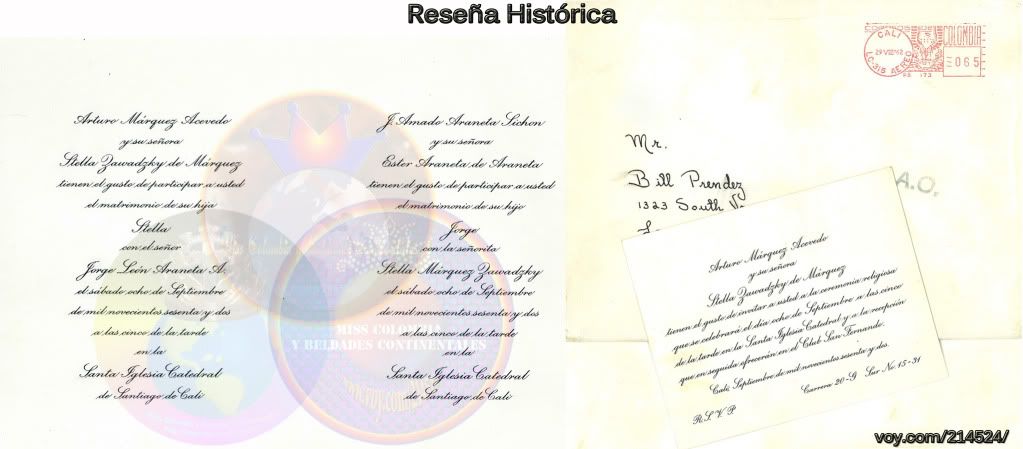 Reseña Histórica
Arturo Márquez Acevedo
y su señora
Stella Zawadzky de Márquez
tienen el gusto de participar a usted
el matrimonio de su hija
Stella
con el señor
Jorge León Araneta A.
el sábado ocho de Septiembre
de mil novecientos sesenta y dos
a las cinco de la tarde
en la
Santa Iglesia Catedral
de Santiago de Cali
J. Amado Araneta Sichon
y su señora
Ester Araneta de Araneta
tienen el gusto de participar a usted
el matrimonio de su hijo
Jorge
con la señorita
Stella Márquez Zawadzky
el sábado ocho de Septiembre
de mil novecientos sesenta y dos
a las cinco de la tarde
en la
Santa Iglesia Catedral
de Santiago de Cali
MISS COLOMBIA
Y BELDADES CONTINENTALES
CALI
LC-315 AEREO
COLOMBIA
065
Mr.
Bill Prendez
1323 South
A.O.
Arturo Márquez Acevedo
y su señora
Stella Zawadzky de Márquez
tienen el gusto de invitar a usted a la ceremonia religiosa
que se celebrará el día ocho de Septiembre a las cinco
de la tarde en la Santa Iglesia Catedral y a la recepción
que en seguida ofrecerán en el Club San Fernando.
Cali, Septiembre de mil novecientos sesenta y dos.
Carrera 20-9 Sur No 15-31
R.S.V.P.
voy.com/214524/